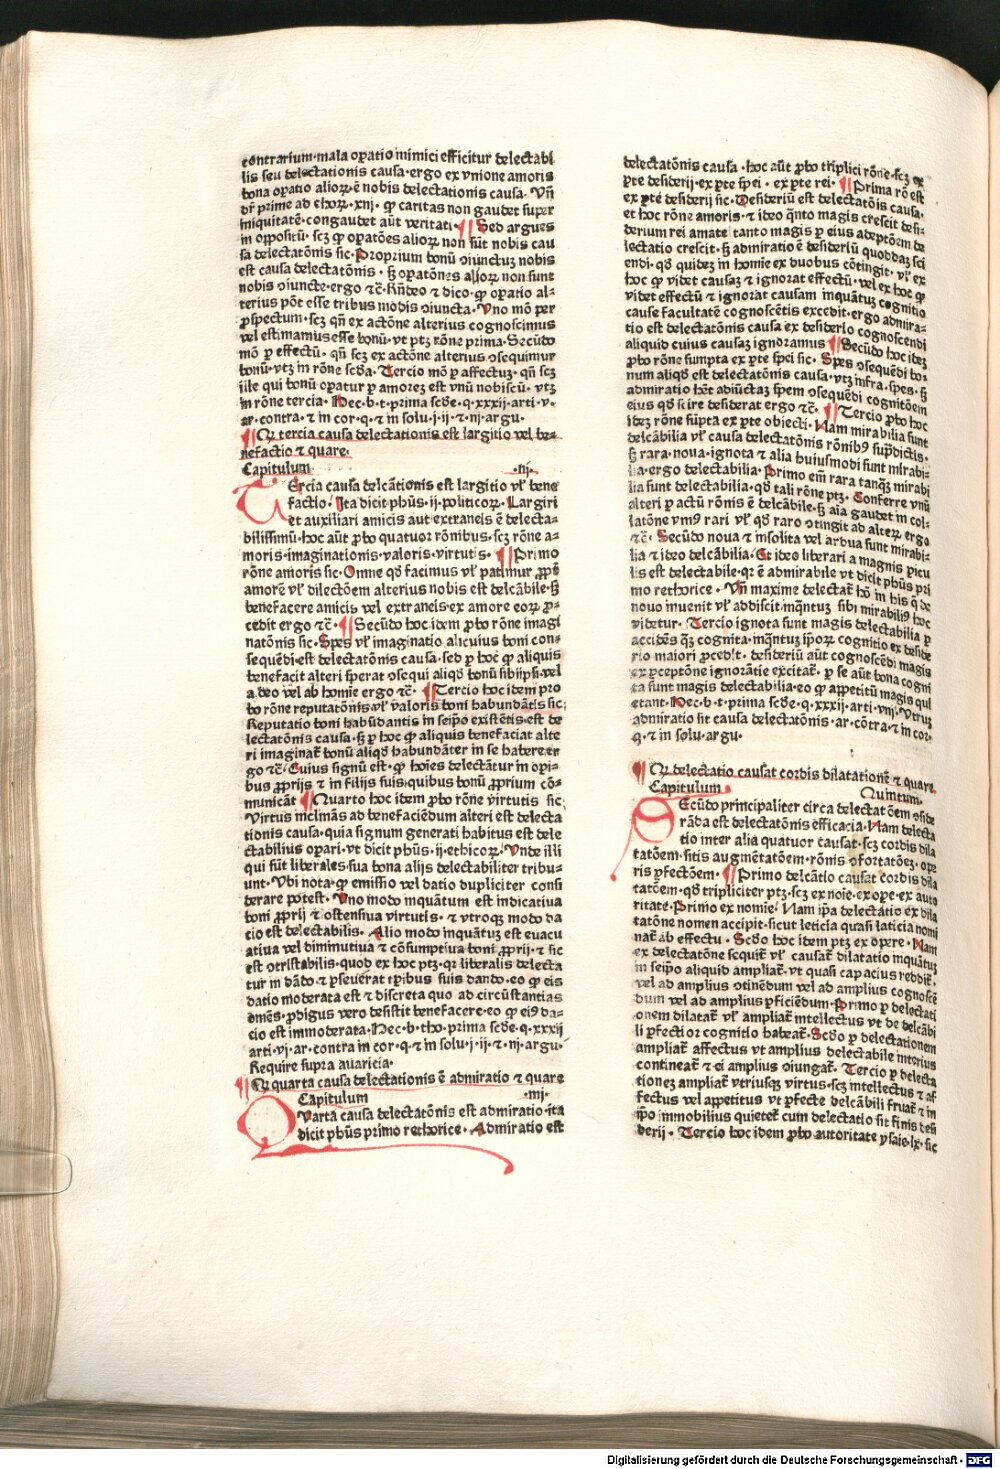 contrarium·mala oꝑatio inimici efficitur delectabi
lis seu delectationis causa·ergo ex vnione amoris
bona oꝑatio alioꝝ ē nobis delectationis causa· Vñ
dr̄ prime ad choꝝ·xiij· ꝙ caritas non gaudet super
iniquitatē·congaudet aūt veritati· ¶ Sed argues
in oppositū· scꝫ ꝙ oꝑatōes alioꝝ non sūt nobis cau
sa delectatōnis sic· Proprium bonū ↄiunctuꝫ nobis
est causa delectatōnis · ꝫ oꝑatōnes alioꝝ non sunt
nobis ↄiuncte·ergo ⁊c̄· Rn̄deo ⁊ dico·ꝙ oꝑatio al-
terius pōt esse tribus modis ↄiuncta· Vno mō per
ꝓspectum·scꝫ qñ ex actōne alterius cognoscimus
vel estimamus esse bonū·vt ptꝫ rōne prima·Secūdo
mō ꝑ effectū· qñ scꝫ ex actōne alterius ↄsequimur
bonū·vtꝫ in rōne scd̄a· Tercio mō ꝑ affectuꝫ· qñ scꝫ
ille qui bonū oꝑatur ꝑ amoreꝫ est vnū nobiscū· vtꝫ
in rōne tercia· Hec·b·t·prima scd̄e·q·xxxij·arti·v·
ar·contra·⁊ in cor·q·⁊ in solu·j·ij·⁊·iij·argu·
¶ Ꝙ tercia causa delectationis est largitio vel be-
nefactio ⁊ quare·
Capitulum ·iij·
TErcia causa delcātionis est largitio vl̄ bene
factio· Ita dicit ph̄us·ij·politicoꝝ· Largiri
et auxiliari amicis aut extraneis ē delecta-
bilissimū·hoc aūt ꝓbo quatuor rōnibus·scꝫ rōne a-
moris·imaginationis·valoris·virtutis· ¶ Primo
rōne amoris sic·Omne qd̄ facimus vl̄ patimur ꝓpt̄
amorē vl̄ dilectōem alterius nobis est delcābile·ꝫ
benefacere amicis vel extraneis·ex amore eoꝝ ꝓ-
cedit ergo ⁊c̄· ¶ Secūdo hoc idem ꝓbo rōne imagi
natōnis sic·Spes vl̄ imaginatio alicuius boni con-
sequēdi·est delectatōnis causa·sed ꝑ hoc ꝙ aliquis
benefacit alteri sperat ↄsequi aliqd̄ bonū sibiipsi·vel
a deo vel ab homīe ergo ⁊c̄· ¶ Tercio hoc idem pro
bo rōne reputatōnis vl̄ valoris boni habundātis sic:
Reputatio boni habūdantis in seip̄o existētis·est de
lectatōnis causa·ꝫ ꝑ hoc ꝙ aliquis benefaciat alte
ri imaginat̄ bonū aliqd̄ habundāter in se habere·er
go ⁊c̄· Cuius signū est·ꝙ hoīes delectātur in oꝑi-
bus ꝓprijs ⁊ in filijs suis·quibus bonū ꝓprium cō-
municāt ¶ Quarto hoc idem ꝓbo rōne virtutis sic·
Virtus inclinās ad benefaciēdum alteri est delecta
tionis causa·quia signum generati habitus est dele
ctabilius oꝑari·vt dicit ph̄us·ij·ethicoꝝ· Vnde illi
qui sūt liberales·sua bona alijs delectabiliter tribu-
unt·Vbi nota·ꝙ emissio vel datio dupliciter consi
derare potest· Vno modo inquātum est indicatiua
boni ꝓprij ⁊ ostensiua virtutis· ⁊ vtroqꝫ modo da
tio est delectabilis· Alio modo inquātuꝫ est euacu
atiua vel diminutiua ⁊ cōsumptiua boni ꝓprij·⁊ sic
est ↄtristabilis·quod ex hoc ptꝫ·qꝛ liberalis delecta
tur in dādo·⁊ ꝑseuerat ip̄ibus suis dando·eo ꝙ eis
datio moderata est ⁊ discreta quo ad circūstantias
om̄es·ꝓdigus vero desistit benefacere·eo ꝙ eiꝰ da-
cio est immoderata·Hec·b·tho·prima scd̄e·q·xxxij
arti·vj·ar·contra in cor·q·⁊ in solu·j·ij·⁊·iij·argu·
Require supra auaricia·
¶ Ꝙ quarta causa delectationis ē admiratio ⁊ quare
Capitulum ·iiij·
QVarta causa delectatōnis est admiratio·ita
dicit ph̄us primo rethorice· Admiratio est
delectatōnis causa ·hoc aūt ꝓbo triplici rōne·scꝫ ex
ꝑte desiderij·ex ꝑte spei · ex ꝑte rei· ¶ Prima rō est
ex ꝑte desiderij sic· Desideriū est delectatōis causa·
et hoc rōne amoris·⁊ ideo qn̄to magis crescit desi-
derium rei amate tanto magis ꝑ eius adeptōem de
lectatio crescit·ꝫ admiratio ē desideriū quoddaꝫ sci
endi·qd̄ quideꝫ in homīe ex duobus cōtingit· vl̄ ex
hoc ꝙ videt causaꝫ ⁊ ignorat effectū·vel ex hoc ꝙ
videt effectū ⁊ ignorat causam inquātuꝫ cognitio
cause facultatē cognoscētis excedit·ergo admira-
tio est delectatōnis causa ex desiderio cognoscendi
aliquid cuius causaꝫ ignoramus ¶ Secūdo hoc ideꝫ
ꝓbo rōne sumpta ex ꝑte spei sic· Spes ↄsequēdi bo-
num aliqd̄ est delectatōnis causa·vtꝫ infra·spes·ꝫ
admiratio hēt adiūctaꝫ spem ↄsequēdi cognitōem
eius qd̄ scire desiderat ergo ⁊c̄· ¶ Tercio ꝓbo hoc
ideꝫ rōne sūpta ex ꝑte obiecti· Nam mirabilia sunt
delcābilia vl̄ causa delectatōnis rōnibꝰ supͣdictis·
ꝫ rara·noua·ignota ⁊ alia huiusmodi sunt mirabi-
lia·ergo delectabilia·Primo em̄ rara tanqꝫ mirabi
lia sunt delectabilia·qd̄ tali rōne ptꝫ· Conferre vnū
alteri ꝑ actū rōnis ē delcābile·ꝫ aīa gaudet in col-
latōne vniꝰ rari vl̄ qd̄ raro ↄtingit ad alteꝝ ergo
⁊c̄· Secūdo noua ⁊ insolita vel ardua sunt mirabi-
lia ⁊ ideo delcābilia· Et ideo liberari a magnis ꝑicu
lis est delectabile·qꝛ ē admirabile vt dicit ph̄us pri
mo rethorice · Vñ maxime delectat̄ hō in his q̄ de
nouo inuenit vl̄ addiscit·inqn̄tuꝫ sibi mirabiliꝰ hoc
videtur· Tercio ignota sunt magis delectabilia ꝑ
accidēs qꝫ cognita·inqn̄tuꝫ ip̄oꝝ cognitio ex deside
rio maiori ꝓcedit· desideriū aūt cognoscēdi magis
ex ꝑceptōne ignorātie excitat̄· ꝑ se aūt bona cogni
ta sunt magis delectabilia·eo ꝙ appetitū magis qui
etant·Hec·b·t·prima scd̄e·q·xxxij·arti·viij·Vtruꝫ
admiratio sit causa delectatōnis·ar·cōtra·⁊ in cor·
q·⁊ in solu·argu·
¶ Ꝙ delectatio causat cordis dilatationē ⁊ quare
Capitulum Quintum·
SEcūdo principaliter circa delectatōem ↄside
rāda est delectatōnis efficacia·Nam delecta
tio inter alia quatuor causat·scꝫ cordis dila
tatōem·sitis augmētatōem·rōnis ↄfortatōeꝫ·oꝑe
ris ꝑfectōem· ¶ Primo delcātio causat cordis dila
tatōem·qd̄ tripliciter ptꝫ·scꝫ ex noīe·ex oꝑe·ex auto
ritate·Primo ex nomīe· Nam ip̄a delectatio ex dila
tatōne nomen accipit·sicut leticia quasi laticia nomi
nat̄ ab effectu· Scd̄o hoc idem ptꝫ ex oꝑere · Nam
ex delectatōne sequit̄ vl̄ causat̄ dilatatio inquātuꝫ
in seip̄o aliquid ampliat̄·vt quasi capacius reddit̄·
vel ad amplius ↄtinēdum vel ad amplius cognoscē
dum vel ad amplius ꝑficiēdum·Primo ꝑ delectati
onem dilatat̄ vl̄ ampliat̄ intellectus vt de delcābi
li ꝑfectior cognitio habeat̄·Scd̄o ꝑ delectationem
ampliat̄ affectus vt amplius delectabile interius
contineat̄ ⁊ ei amplius ↄiungat̄· Tercio ꝑ delecta
tioneꝫ ampliat̄ vtriusqꝫ virtus·scꝫ intellectus ⁊ af
fectus vel appetitus vt ꝑfecte delcābili fruat̄ ⁊ in
ip̄o immobilius quietet̄ cum delectatio sit finis desi
derij · Tercio hoc idem ꝓbo autoritate ysaie·lx·sic
Digitalisierung gefördert durch die Deutsche Forschungsgemeinschaft - DFG